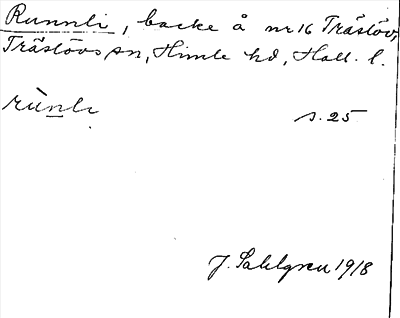 Runnli, backe å nr 16 Träslöv,
Träslövs sn, Himle hd, Hall. l.
rùnli s. 25
J. Sahlgren 1918